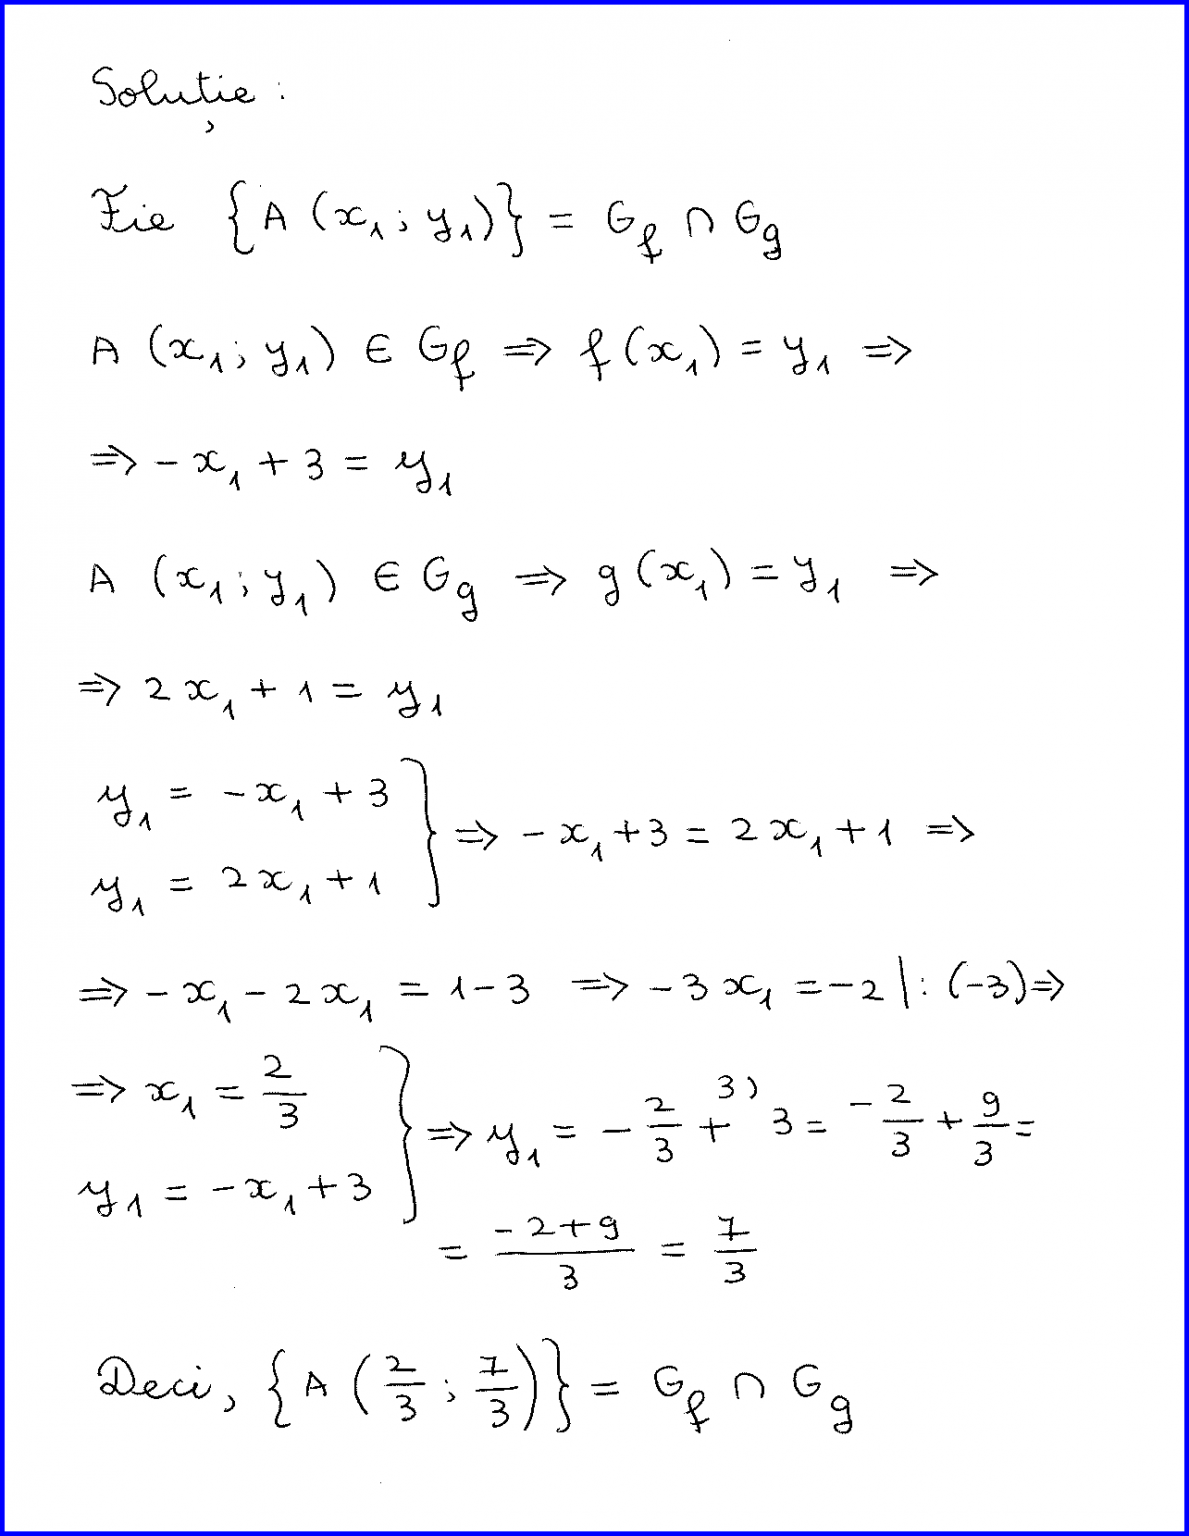 Soluție :
Fie {A (x₁ ; y₁)} = G_f ∩ G_g
A (x₁ ; y₁) ∈ G_f ⇒ f(x₁) = y₁ ⇒
⇒ -x₁ + 3 = y₁
A (x₁ ; y₁) ∈ G_g ⇒ g(x₁) = y₁ ⇒
⇒ 2x₁ + 1 = y₁
y₁ = -x₁ + 3
y₁ = 2x₁ + 1 } ⇒ -x₁ + 3 = 2x₁ + 1 ⇒
⇒ -x₁ - 2x₁ = 1 - 3 ⇒ -3x₁ = -2 | : (-3) ⇒
⇒ x₁ = 2/3
y₁ = -x₁ + 3 } ⇒ y₁ = -2/3 + ³⁾3 = -2/3 + 9/3 =
= (-2+9)/3 = 7/3
Deci, {A (2/3 ; 7/3)} = G_f ∩ G_g